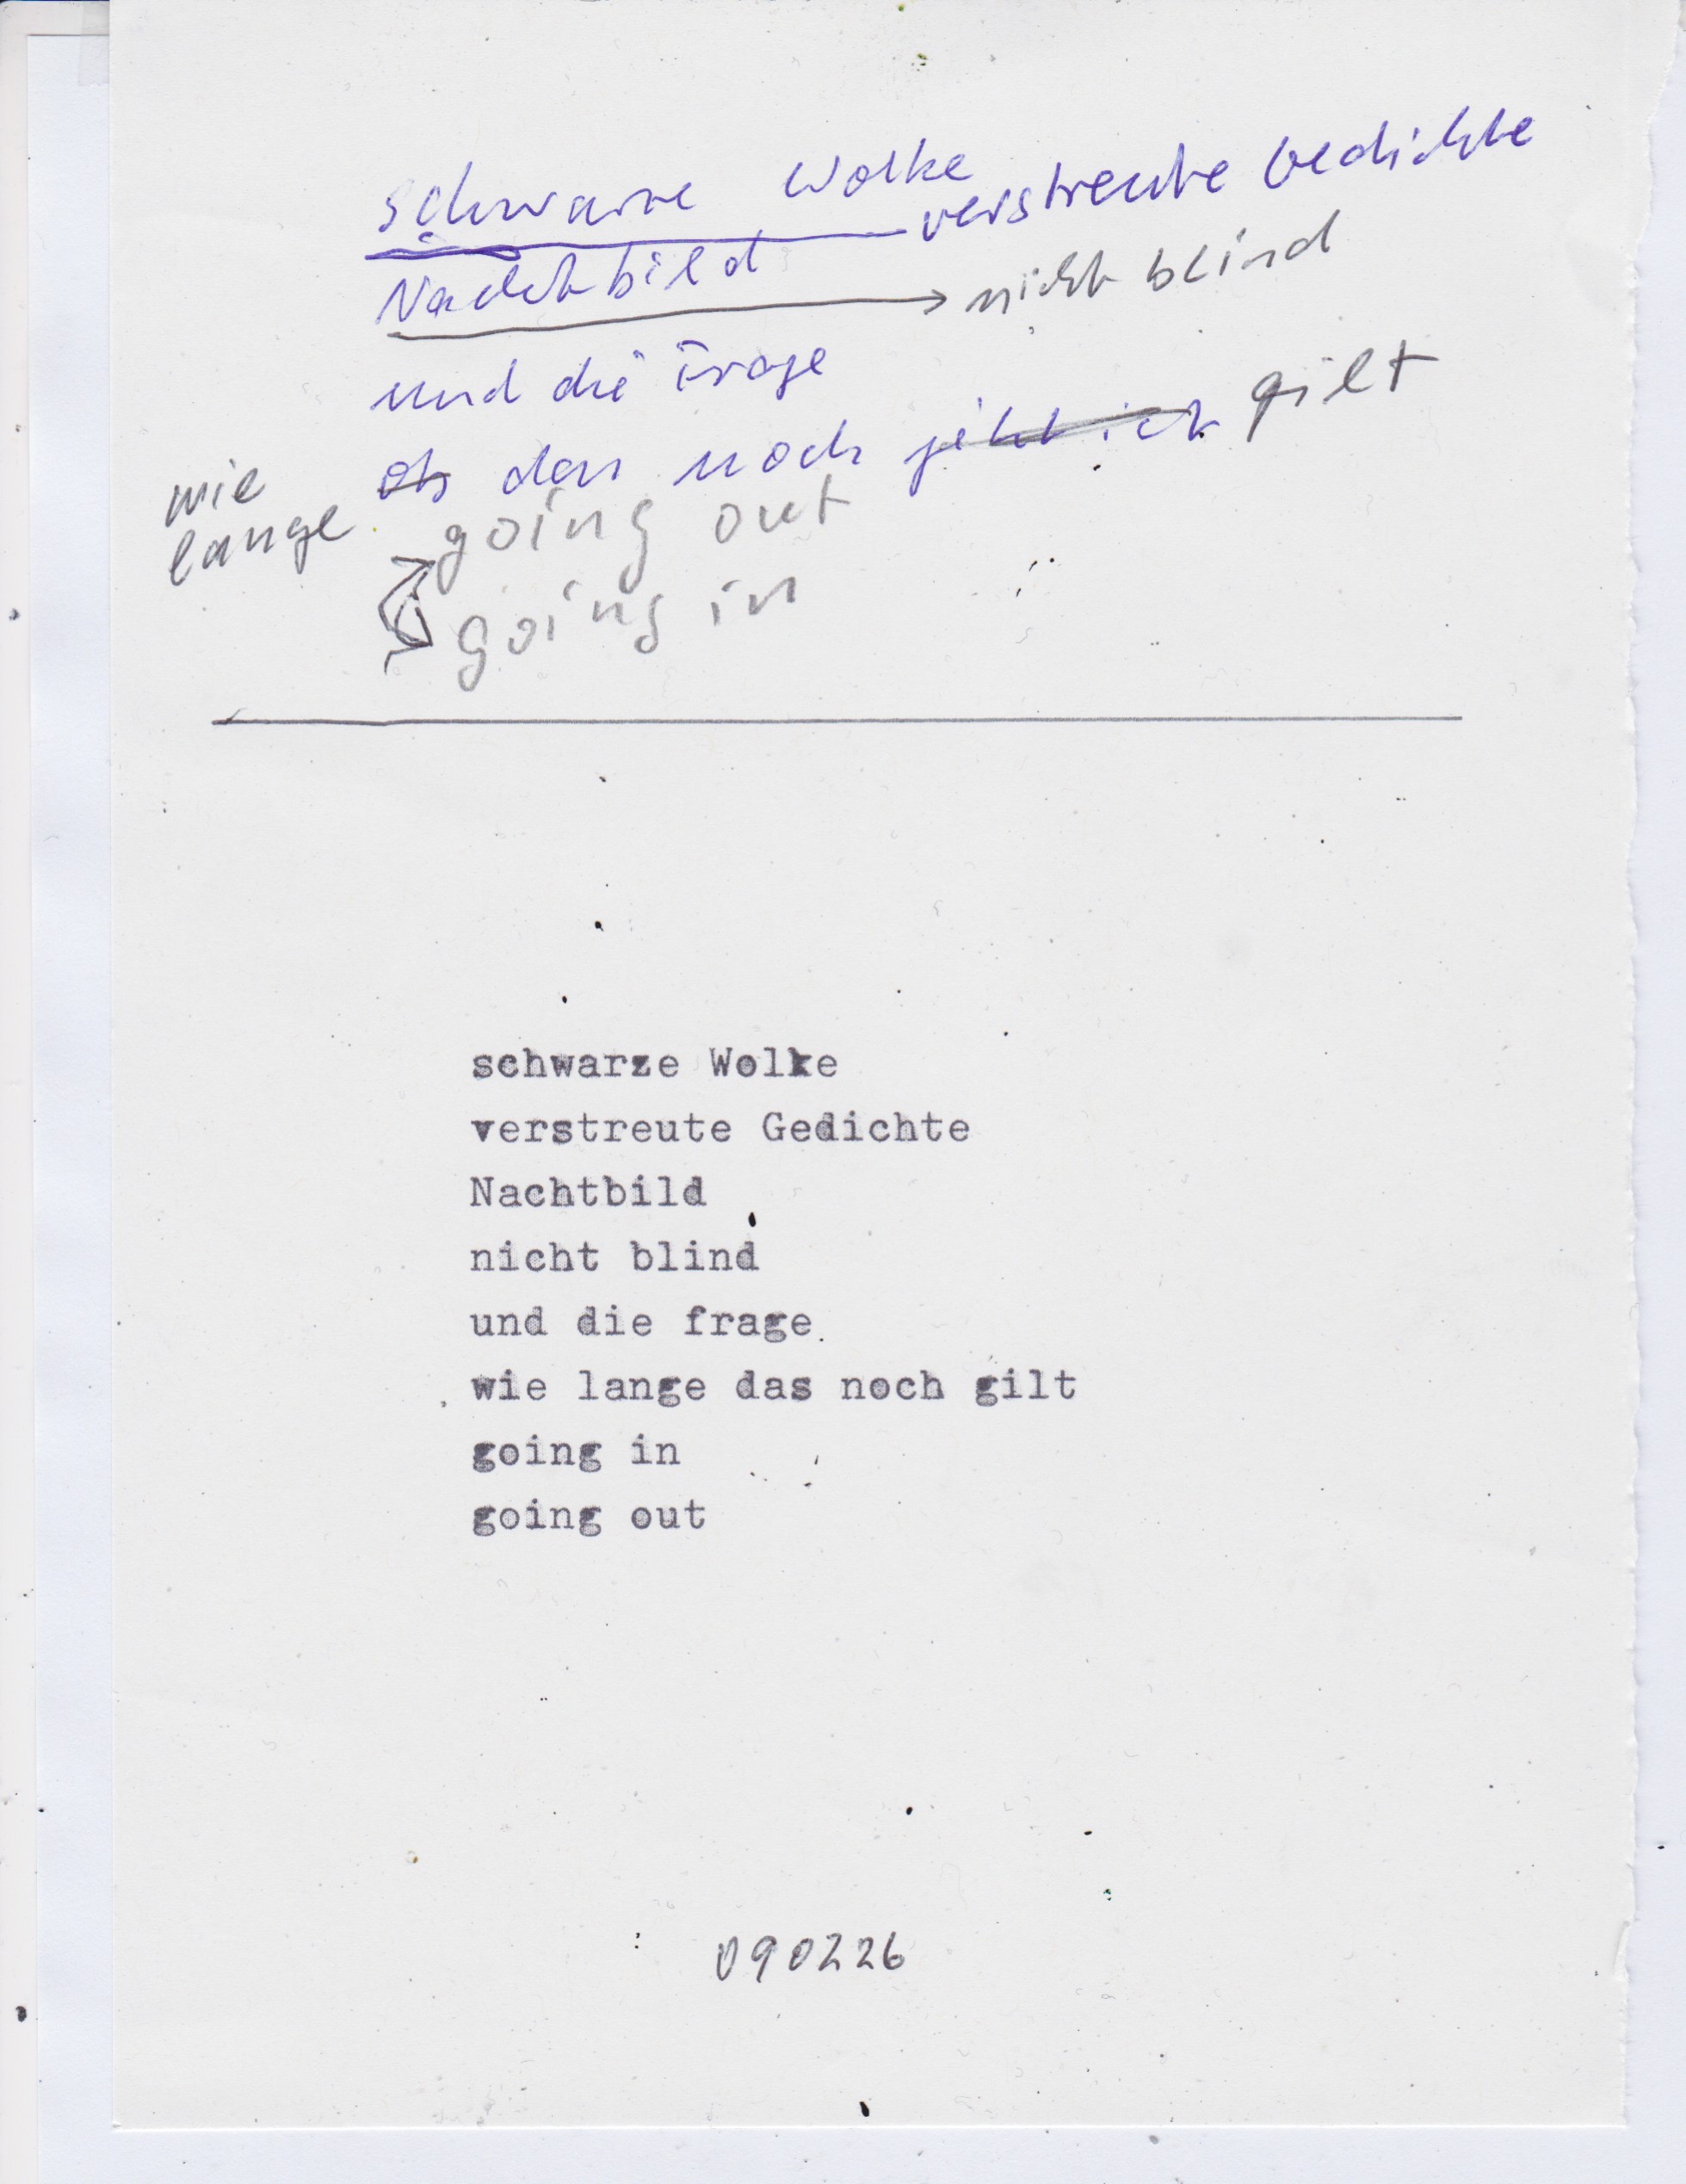 schwarze Wolke verstreute Gedichte
Nachtbild nicht blind
und die Frage
wie lange
ob das noch gilt
going out
going in
schwarze Wolke
verstreute Gedichte
Nachtbild
nicht blind
und die frage
wie lange das noch gilt
going in
going out
090226